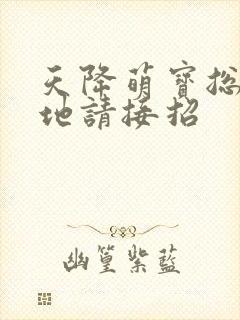 天降萌寶総
地請接招
幽篁紫藍